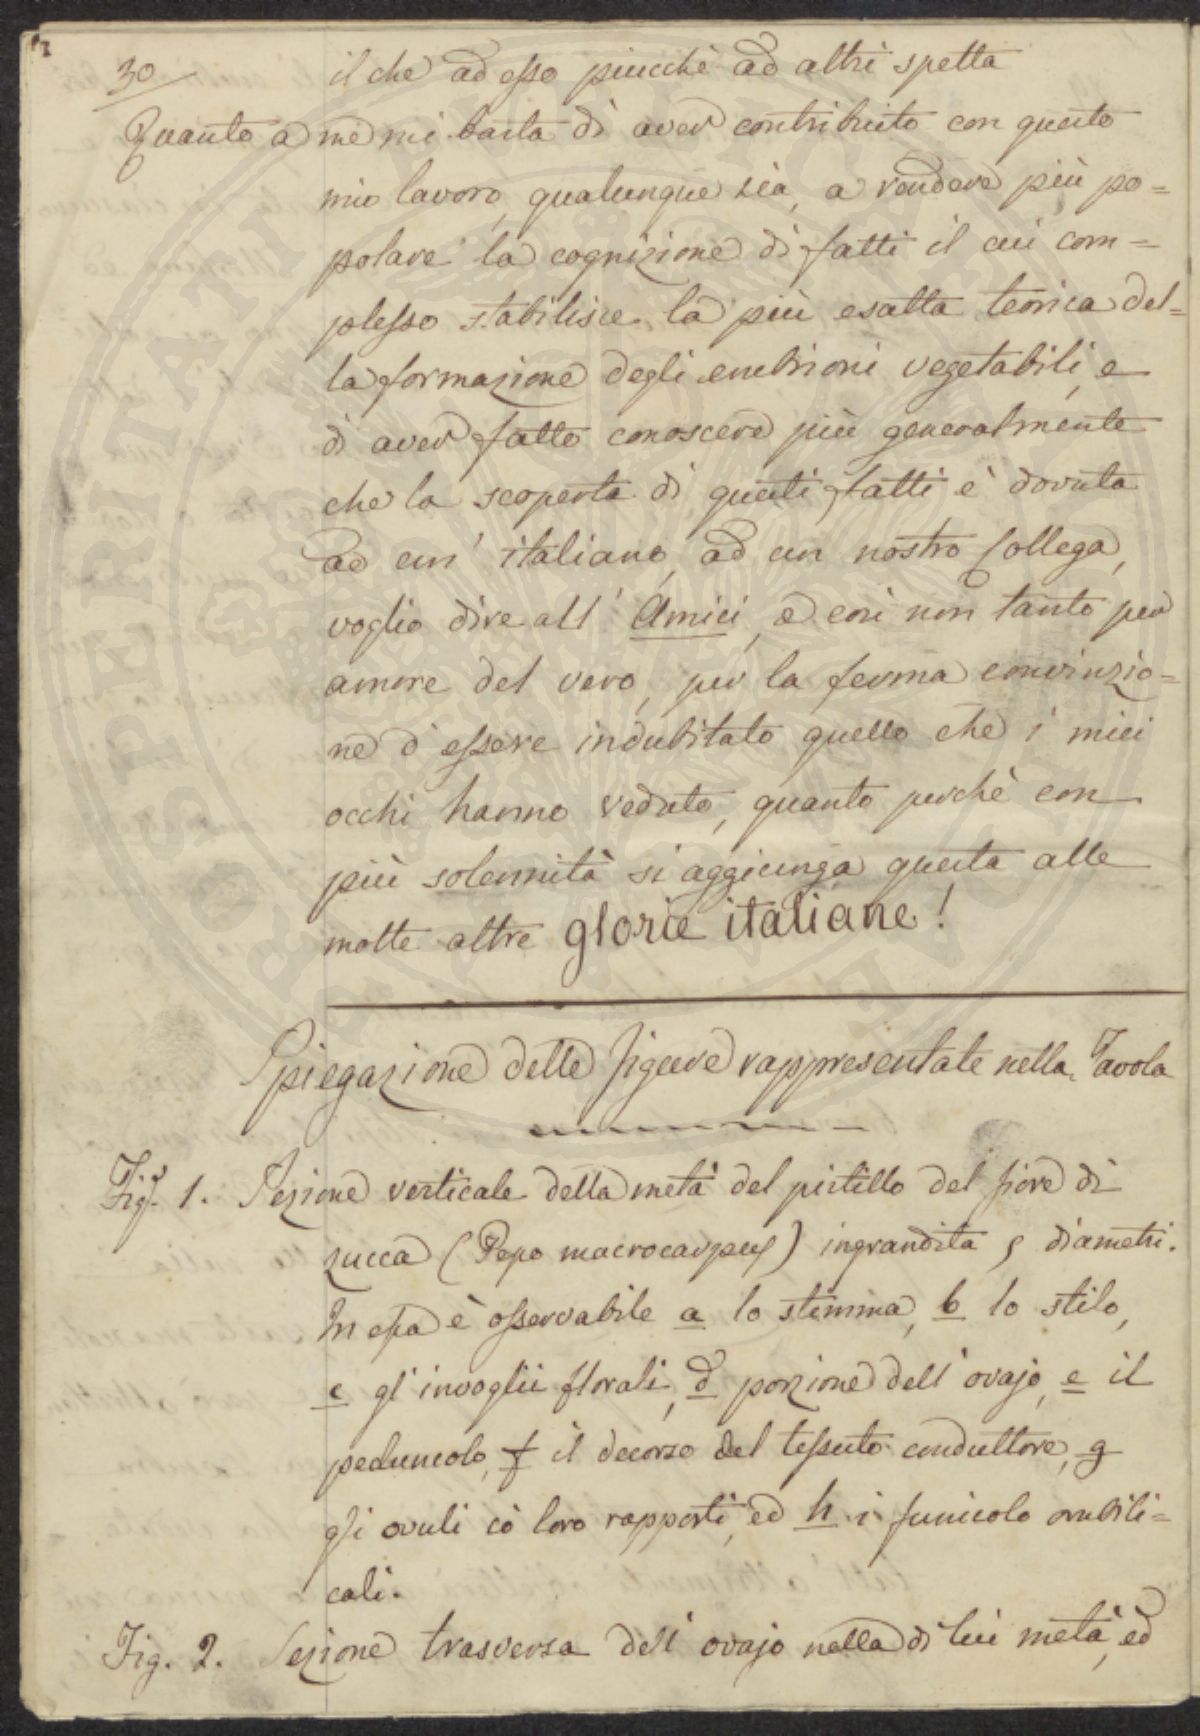 30
il che ad esso piucchè ad altri spetta
Quanto a me mi basta di aver contribuito con questo
mio lavoro, qualunque sia, a rendere più po=
polare la cognizione di fatti il cui com=
plesso stabilisce la più esatta teorica del=
la formazione degli embrioni vegetabili, e
di aver fatto conoscere più generalmente
che la scoperta di questi fatti è dovuta
ad un' italiano, ad un nostro Collega,
voglio dire all' Amici, e così non tanto per
amore del vero, per la ferma convinzio=
ne d'essere indubitato quello che i miei
occhi hanno veduto, quanto perchè con
più solennità si aggiunga questa alle
molte altre glorie italiane!
Spiegazione delle figure rappresentate nella Tavola
Fig. 1. Sezione verticale della metà del pistillo del fiore di
zucca (Pepo macrocarpus) ingrandita 5 diametri.
In essa è osservabile a lo stimma, b lo stilo,
c gl'invoglii florali, d porzione dell'ovajo, e il
peduncolo, f il decorso del tessuto conduttore, g
gli ovuli co loro rapporti, ed h i funicolo ombili=
cali.
Fig. 2. Sezione trasversa dell'ovajo nella di lui metà, ed
PROSPERITATI PUBLICAE AUGENDAE